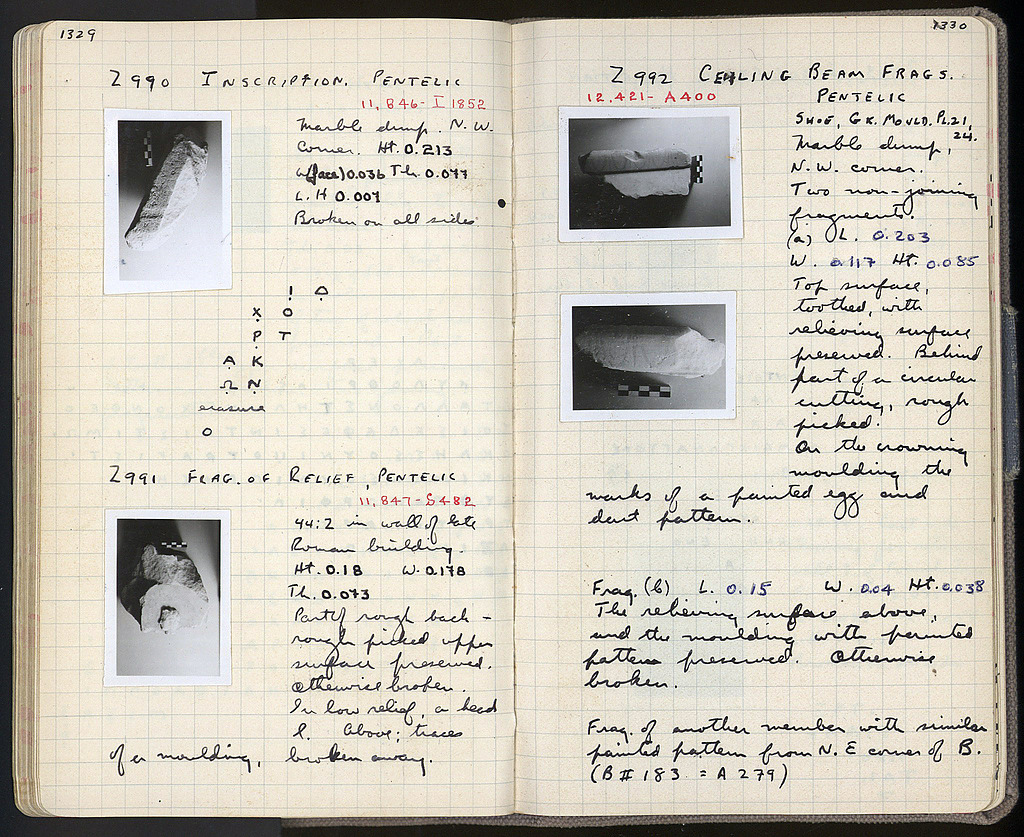 1329
Z 990 INSCRIPTION. PENTELIC
11,846 - I 1852
Marble dump. N.W.
Corner. Ht. 0.213
W (face) 0.036 Th. 0.077
L.H 0.007
Broken on all sides
Ο
Χ Ο
Ρ Τ
Α Κ
Ω Ν
erasure
Ο
Z 991 FRAG. OF RELIEF, PENTELIC
11,847 - S 482
44:2 in wall of late
Roman building.
Ht. 0.18 W. 0.178
Th. 0.073
Part of rough back -
rough picked upper
surface preserved.
Otherwise broken.
In low relief, a head
l. Above; traces
of a moulding, broken away.
1330
Z 992 CEILING BEAM FRAGS.
12,421 - A400
PENTELIC
SHOE, GK. MOULD. PL. 21,
24.
Marble dump,
N.W. corner.
Two non-joining
fragments.
(a) L. 0.203
W. 0.117 Ht. 0.085
Top surface,
toothed, with
relieving surface
preserved. Behind
part of a circular
cutting, rough
picked.
On the crowning
moulding the
marks of a painted egg and
dart pattern.
Frag. (b) L. 0.15 W. 0.04 Ht. 0.038
The relieving surface above,
and the moulding with painted
pattern preserved. Otherwise
broken.
Frag. of another member with similar
painted pattern from N.E corner of B.
(B # 183 = A 279)